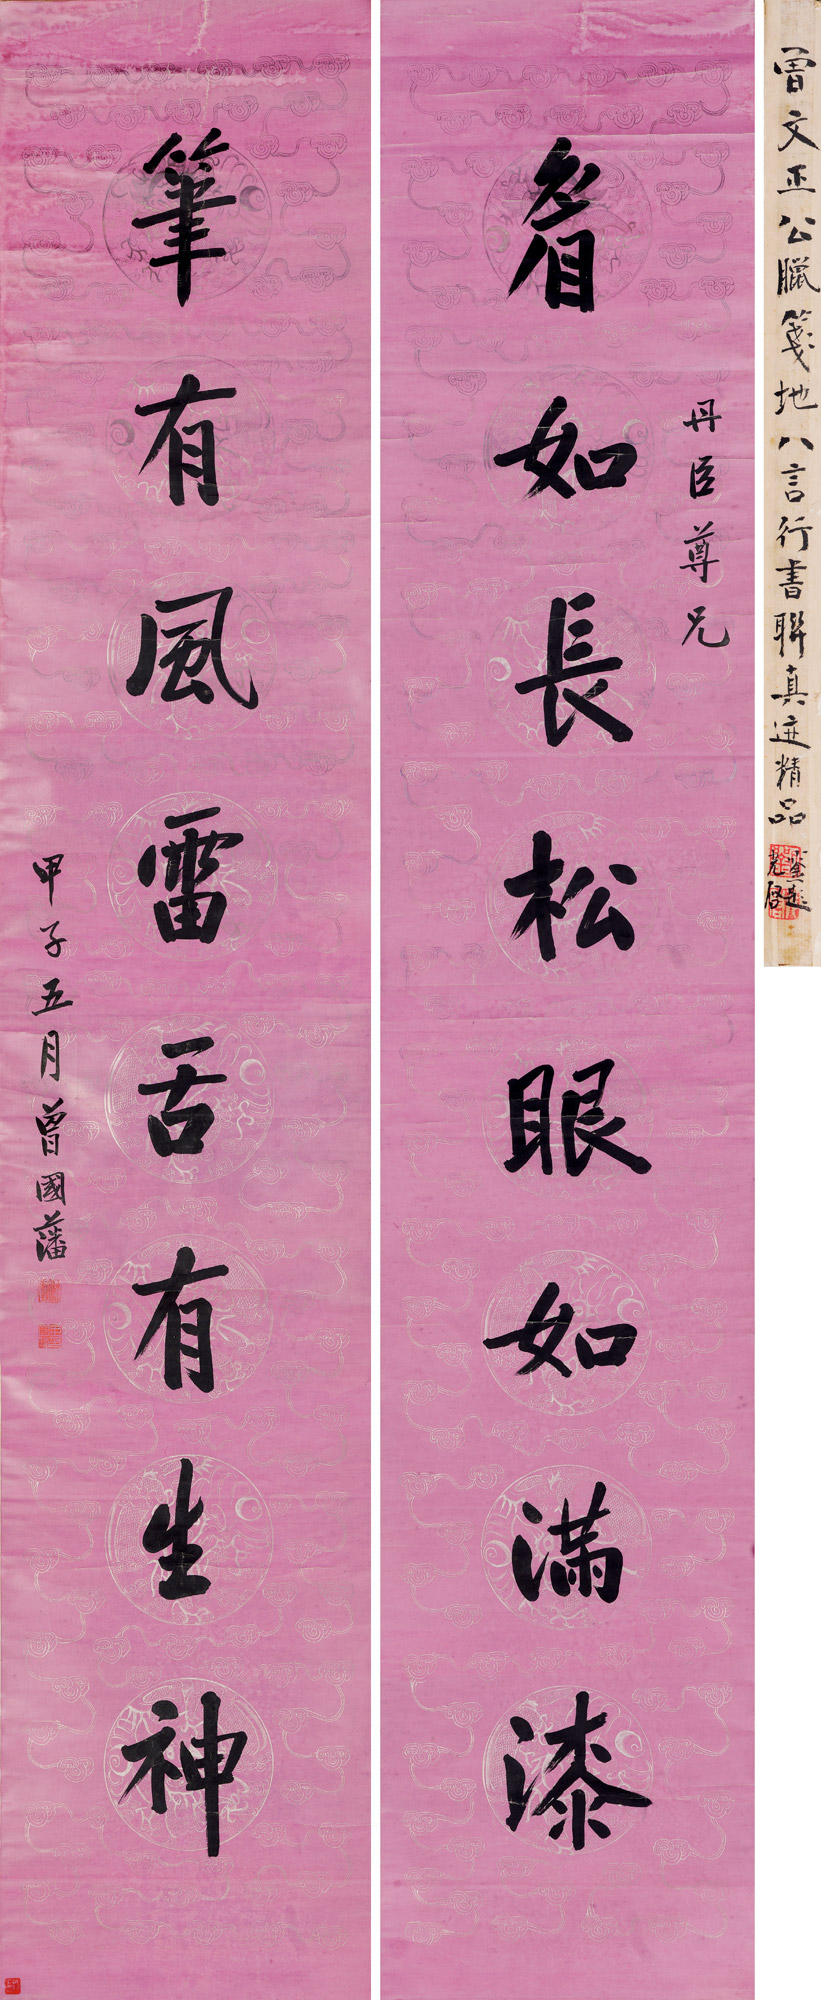 曾文正公臘箋地八言行書聯真迹精品
光啓
丹臣尊兄
眉如長松眼如滿漆
筆有風雷舌有生神
甲子五月曾國藩